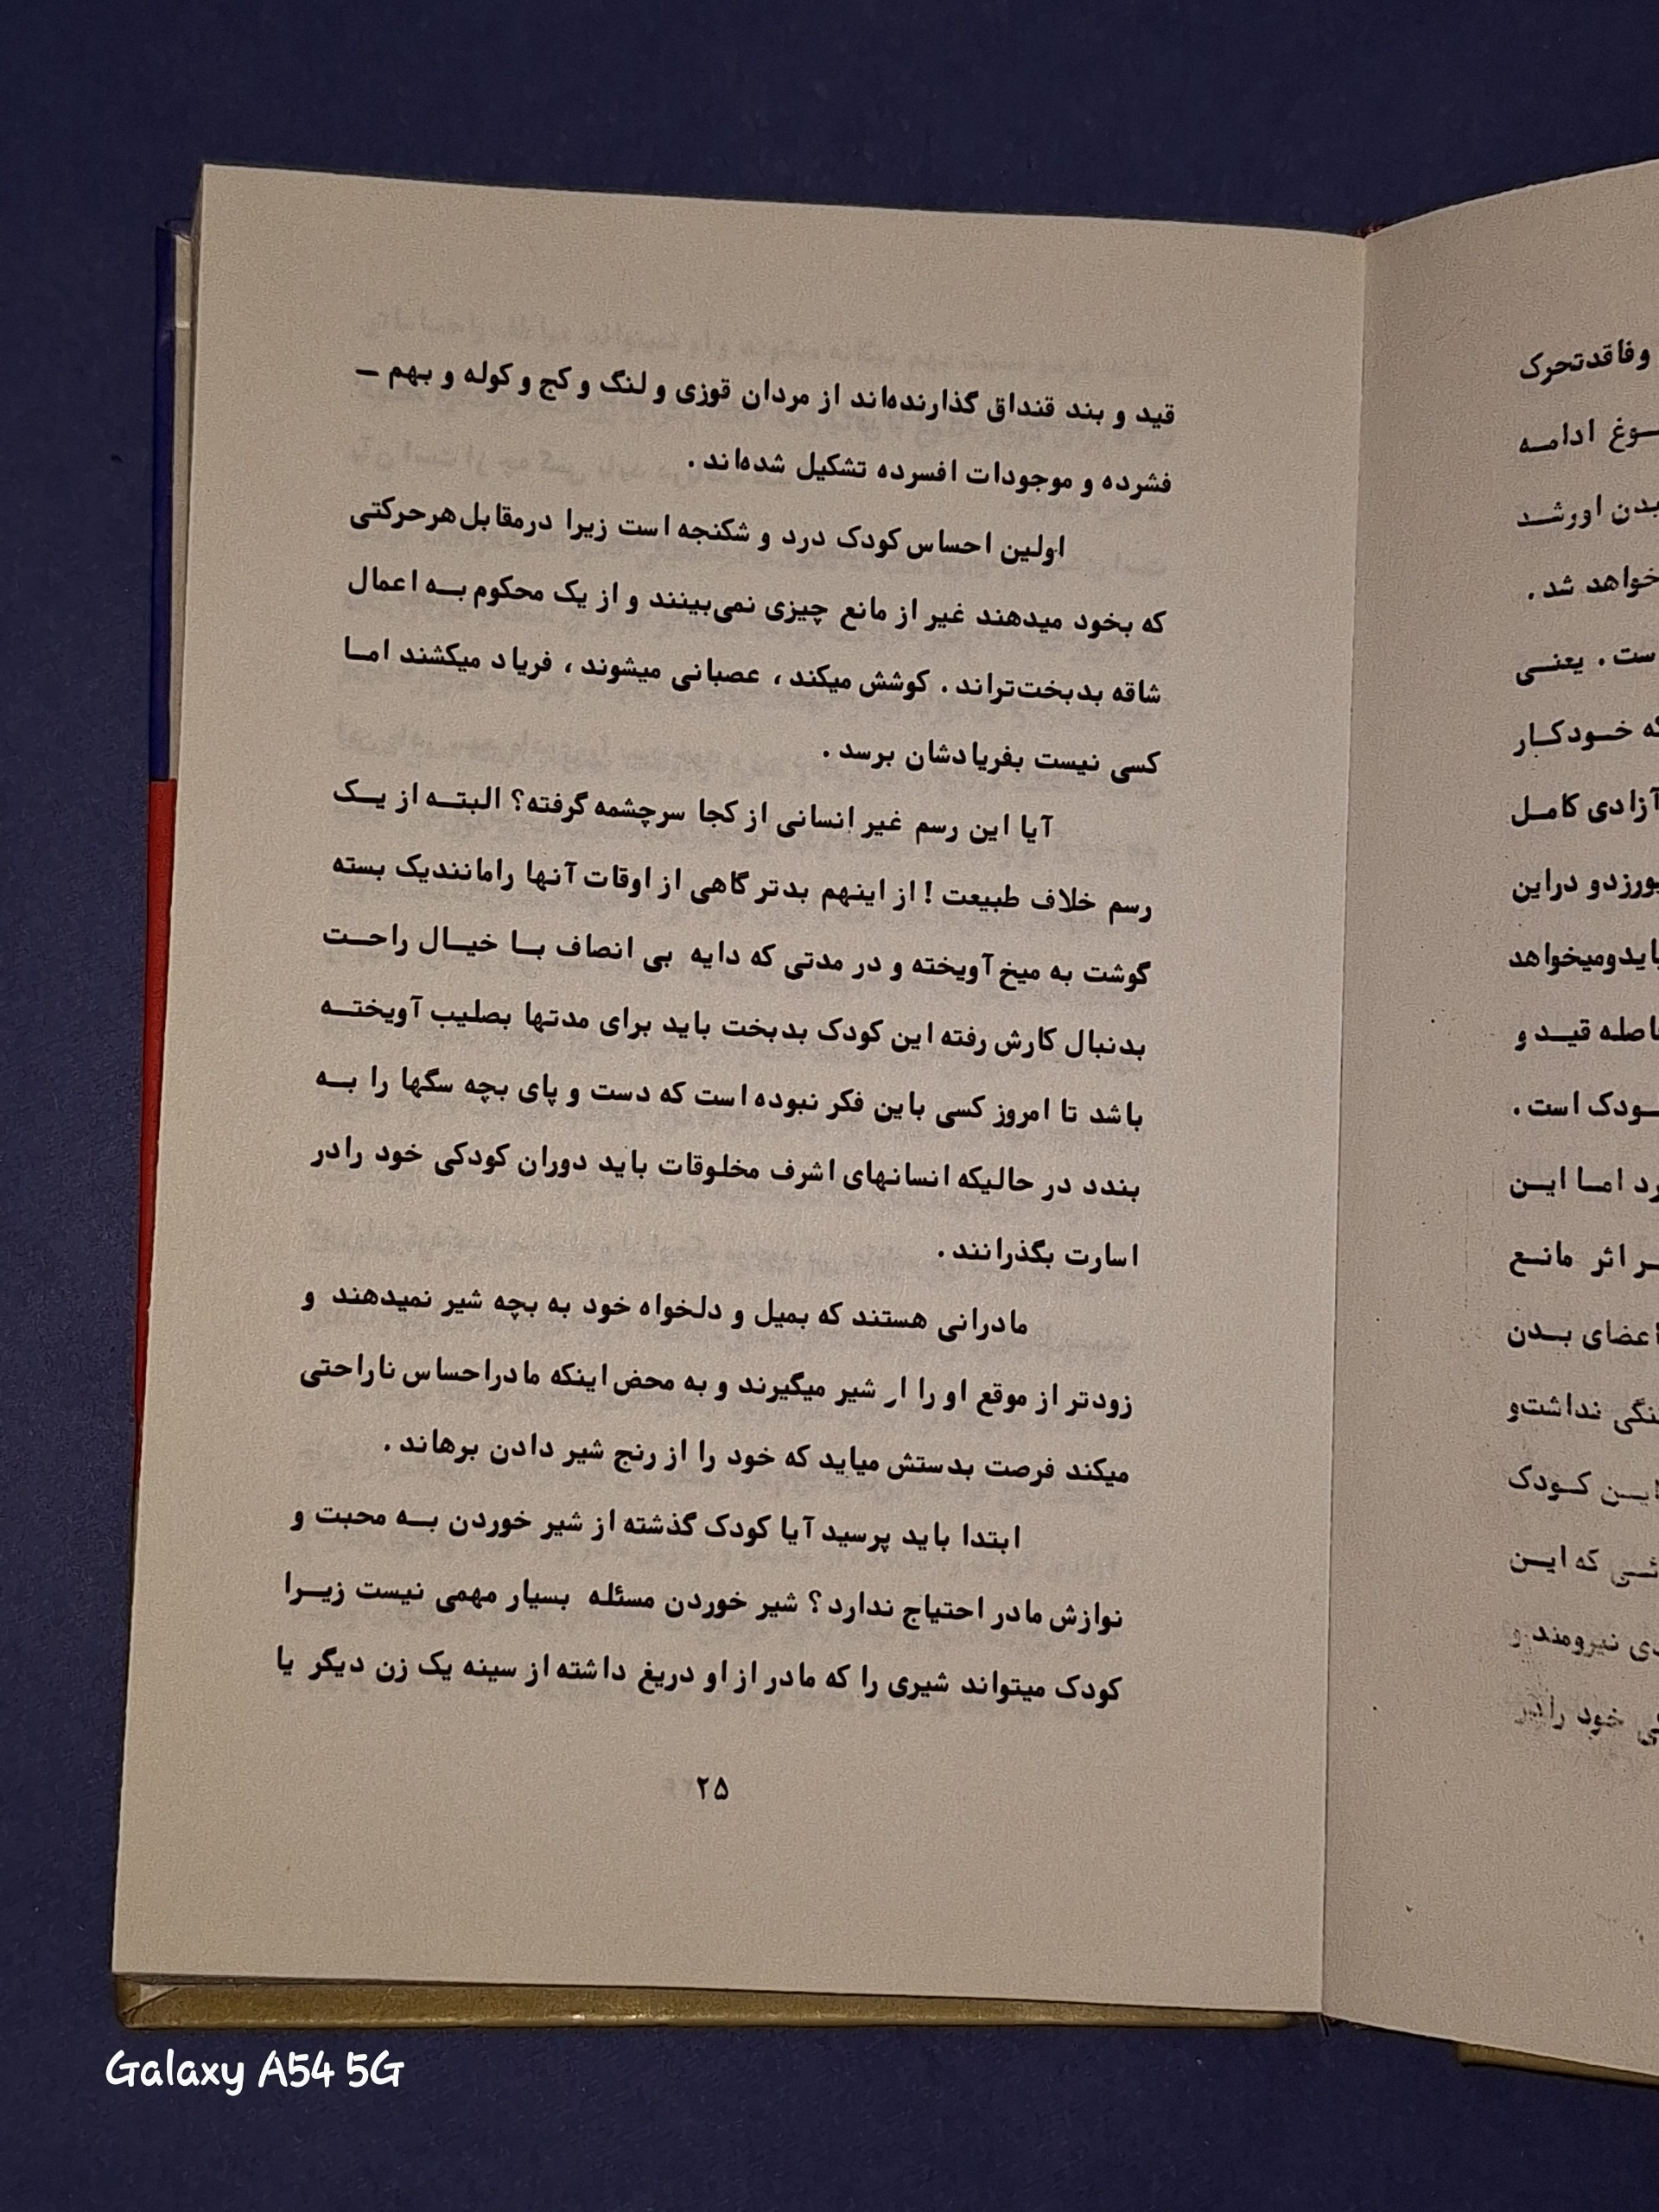 قید و بند قنداق گذارنده‌اند از مردان قوزی و لنگ و کج و کوله و بهم ـ
فشرده و موجودات افسرده تشکیل شده‌اند .
اولین احساس کودک درد و شکنجه است زیرا درمقابل هرحرکتی
که بخود میدهند غیر از مانع چیزی نمی‌بینند و از یک محکوم بـه اعمال
شاقه بدبخت‌تراند . کوشش میکند ، عصبانی میشوند ، فریاد میکشند امـا
کسی نیست بفریادشان برسد .
آیا این رسم غیر انسانی از کجا سرچشمه گرفته؟ البتـه از یـک
رسم خلاف طبیعت ! از اینهم بدتر گاهی از اوقات آنها رامانندیک بسته
گوشت به میخ آویخته و در مدتی که دایه بی انصاف بـا خیـال راحـت
بدنبال کارش رفته این کودک بدبخت باید برای مدتها بصلیب آویختـه
باشد تا امروز کسی باین فکر نبوده است که دست و پای بچه سگها را بـه
بندد در حالیکه انسانهای اشرف مخلوقات باید دوران کودکی خود رادر
اسارت بگذرانند .
مادرانی هستند که بمیل و دلخواه خود به بچه شیر نمیدهند و
زودتر از موقع او را ار شیر میگیرند و به محض اینکه مادراحساس ناراحتی
میکند فرصت بدستش میاید که خود را از رنج شیر دادن برهاند .
ابتدا باید پرسید آیا کودک گذشته از شیر خوردن بـه محبت و
نوازش مادر احتیاج ندارد ؟ شیر خوردن مسئله بسیار مهمی نیست زیـرا
کودک میتواند شیری را که مادر از او دریغ داشته از سینه یک زن دیگر یا
۲۵
وفاقدتحرک
ادامـه
بدن اورشـد
خواهد شد .
ست . یعنـی
که خـودکـار
آزادی کامـل
بورزدو دراین
بایدومیخواهد
قیـد و
کودک است .
امـا ایـن
اثر مانـع
اعضای بـدن
نداشت‌و
ایـن کـودک
که ایـن
نیرومند و
خود رادر
Galaxy A54 5G